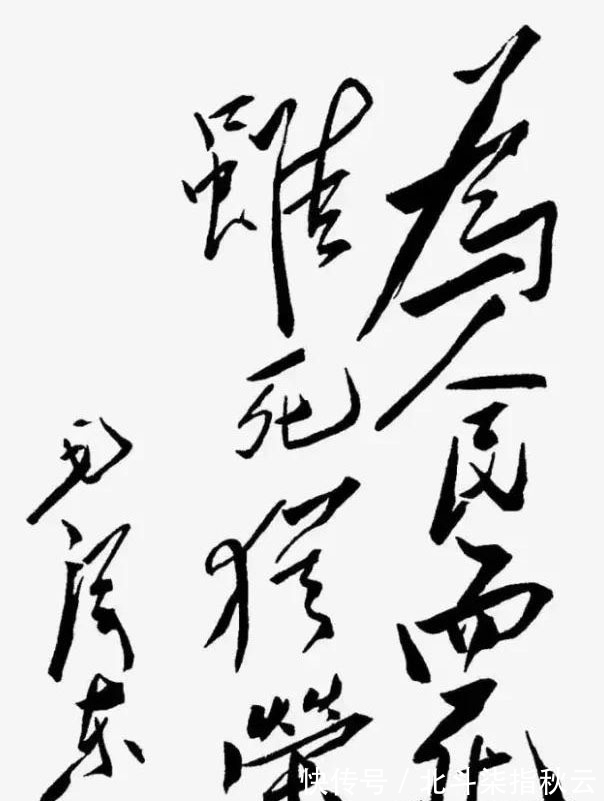 為人民而死
雖死猶榮
毛泽东
快传号 / 北斗柒指秋云